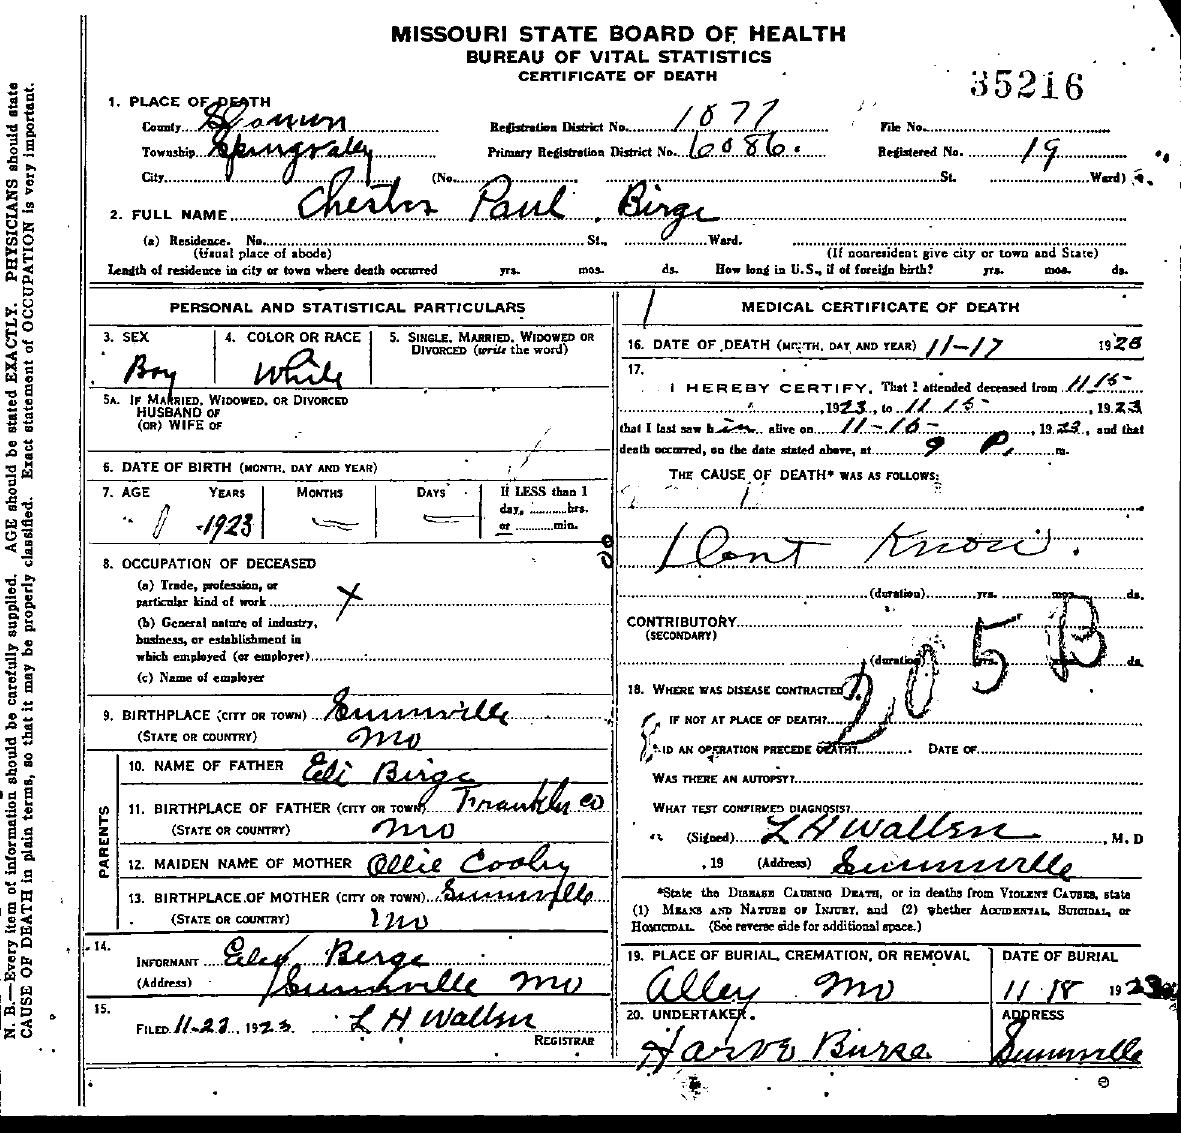 MISSOURI STATE BOARD OF HEALTH
BUREAU OF VITAL STATISTICS
CERTIFICATE OF DEATH
35216
N. B.—Every item of information should be carefully supplied. AGE should be stated EXACTLY. PHYSICIANS should state
CAUSE OF DEATH in plain terms, so that it may be properly classified. Exact statement of OCCUPATION is very important.
1. PLACE OF DEATH
County Registration District No. 1077 File No.
Township Springvaley Primary Registration District No. 6086. Registered No. 19
City (No. St. Ward)
2. FULL NAME Chester Paul Birge
(a) Residence. No. St., Ward.
(Usual place of abode) (If nonresident give city or town and State)
Length of residence in city or town where death occurred yrs. mos. ds. How long in U.S., if of foreign birth? yrs. mos. ds.
PERSONAL AND STATISTICAL PARTICULARS
3. SEX 4. COLOR OR RACE 5. SINGLE, MARRIED, WIDOWED OR
DIVORCED (write the word)
Boy White
5A. IF MARRIED, WIDOWED, OR DIVORCED
HUSBAND OF
(OR) WIFE OF
6. DATE OF BIRTH (MONTH, DAY AND YEAR)
7. AGE YEARS MONTHS DAYS If LESS than 1
day, hrs.
or min.
1923
8. OCCUPATION OF DECEASED
(a) Trade, profession, or
particular kind of work X
(b) General nature of industry,
business, or establishment in
which employed (or employer)
(c) Name of employer
9. BIRTHPLACE (CITY OR TOWN) Summville
(STATE OR COUNTRY) Mo
PARENTS
10. NAME OF FATHER Eli Birge
11. BIRTHPLACE OF FATHER (CITY OR TOWN) Franklin Co
(STATE OR COUNTRY) Mo
12. MAIDEN NAME OF MOTHER Ollie Cooley
13. BIRTHPLACE OF MOTHER (CITY OR TOWN) Summville
(STATE OR COUNTRY) Mo
14.
INFORMANT Birge
(Address) Summville Mo
15.
FILED 11-23, 1923 L H Wallen
REGISTRAR
MEDICAL CERTIFICATE OF DEATH
16. DATE OF DEATH (MONTH, DAY AND YEAR) 11-17 1923
17.
I HEREBY CERTIFY, That I attended deceased from 11 15-
, 1923, to 11 15-, 1923
that I last saw him alive on 11-15-, 1923, and that
death occurred, on the date stated above, at 9 P, m.
THE CAUSE OF DEATH* WAS AS FOLLOWS:
Dont Know.
(duration) yrs. mos. ds.
CONTRIBUTORY
(SECONDARY)
205B
(duration) yrs. ds.
18. WHERE WAS DISEASE CONTRACTED
IF NOT AT PLACE OF DEATH?
DID AN OPERATION PRECEDE DEATH? DATE OF
WAS THERE AN AUTOPSY?
WHAT TEST CONFIRMED DIAGNOSIS?
(Signed) L H Wallen, M. D
, 19 (Address) Summville
*State the DISEASE CAUSING DEATH, or in deaths from VIOLENT CAUSES, state
(1) MEANS AND NATURE OF INJURY, and (2) whether ACCIDENTAL, SUICIDAL, or
HOMICIDAL. (See reverse side for additional space.)
19. PLACE OF BURIAL, CREMATION, OR REMOVAL DATE OF BURIAL
Alley Mo 11 18 1923
20. UNDERTAKER ADDRESS
Harve Summville